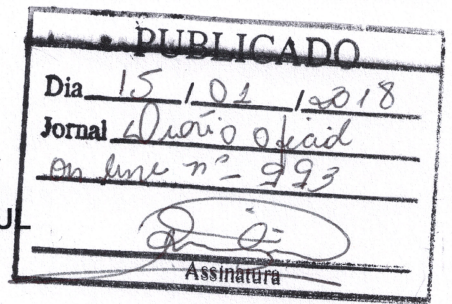 PUBLICADO
Dia 15 / 01 / 2018
Jornal Diário Oficial
on line nº - 993
UL
Assinatura